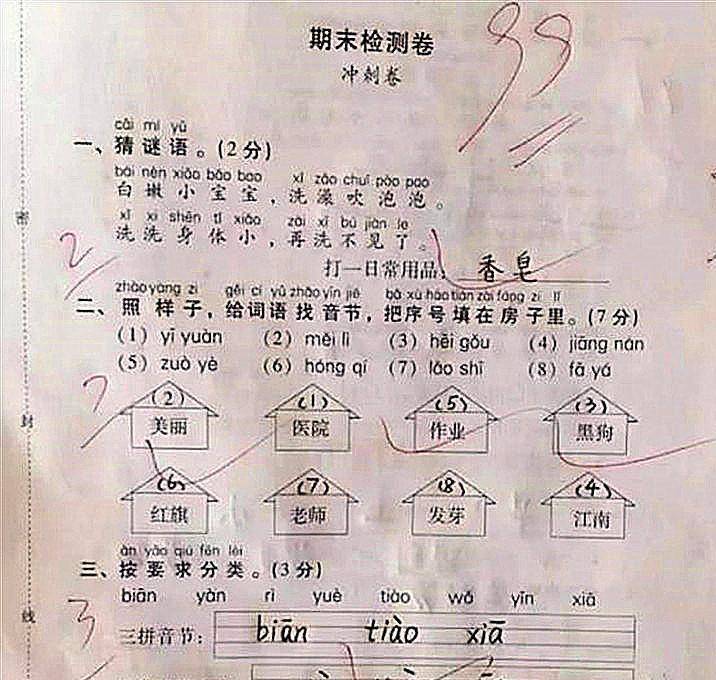 期末检测卷
冲刺卷
98
cāi mí yǔ
一、猜谜语。(2分)
bái nèn xiǎo bǎo bao xǐ zǎo chuī pào pao
白嫩小宝宝，洗澡吹泡泡。
xǐ xi shēn tǐ xiǎo zài xǐ bú jiàn le
洗洗身体小，再洗不见了。
2
打一日常用品：香皂
zhào yàng zi gěi cí yǔ zhǎo yīn jié bǎ xù hào tián zài fáng zi lǐ
二、照样子，给词语找音节，把序号填在房子里。(7分)
(1) yī yuàn (2) měi lì (3) hēi gǒu (4) jiāng nán
(5) zuò yè (6) hóng qí (7) lǎo shī (8) fā yá
7
(2) (1) (5) (3)
美丽 医院 作业 黑狗
(6) (7) (8) (4)
红旗 老师 发芽 江南
àn yāo qiú fēn lèi
三、按要求分类。(3分)
biān yàn rì yuè tiào wǒ yīn xiā
3
三拼音节：biān tiào xiā
密
封
线